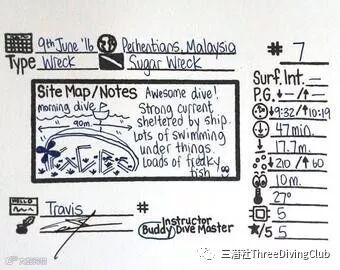 9th June '16 Perhentians, Malaysia # 7
Type Wreck Sugar Wreck
Site Map/Notes
morning dive
90m
Awesome dive!
Strong current
sheltered by ship.
Lots of swimming
under things.
Loads of freaky
fish!
Surf. Int. —
P.G. ↓ - / ↑ -
↓9:32/↑10:19
47min.
17.7m.
↓210/↑60
10m.
27°
5
/5 5
HELLO
Travis #
Instructor
Buddy Dive Master
三潜社ThreeDivingClub